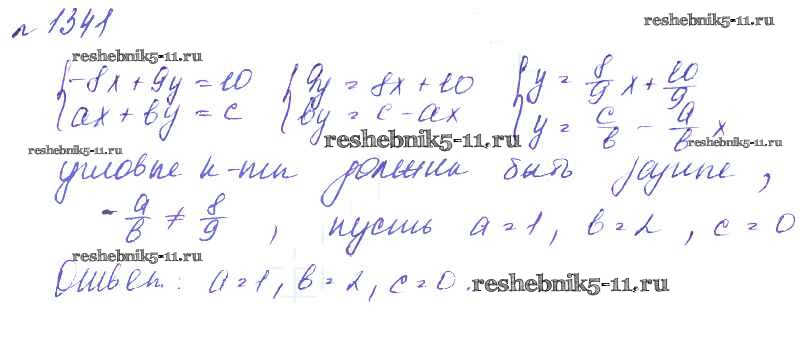 № 1341
reshebnik5-11.ru
reshebnik5-11.ru
{-8x + 9y = 10 {9y = 8x + 10 {y = 8/9 x + 10/9
{ax + by = c {by = c - ax {y = c/b - a/b x
reshebnik5-11.ru
reshebnik5-11.ru
reshebnik5-11.ru
угловые к-ты должны быть разные,
-a/b ≠ 8/9, пусть a = 1, b = 2, c = 0
reshebnik5-11.ru
Ответ: a = 1, b = 2, c = 0.
reshebnik5-11.ru